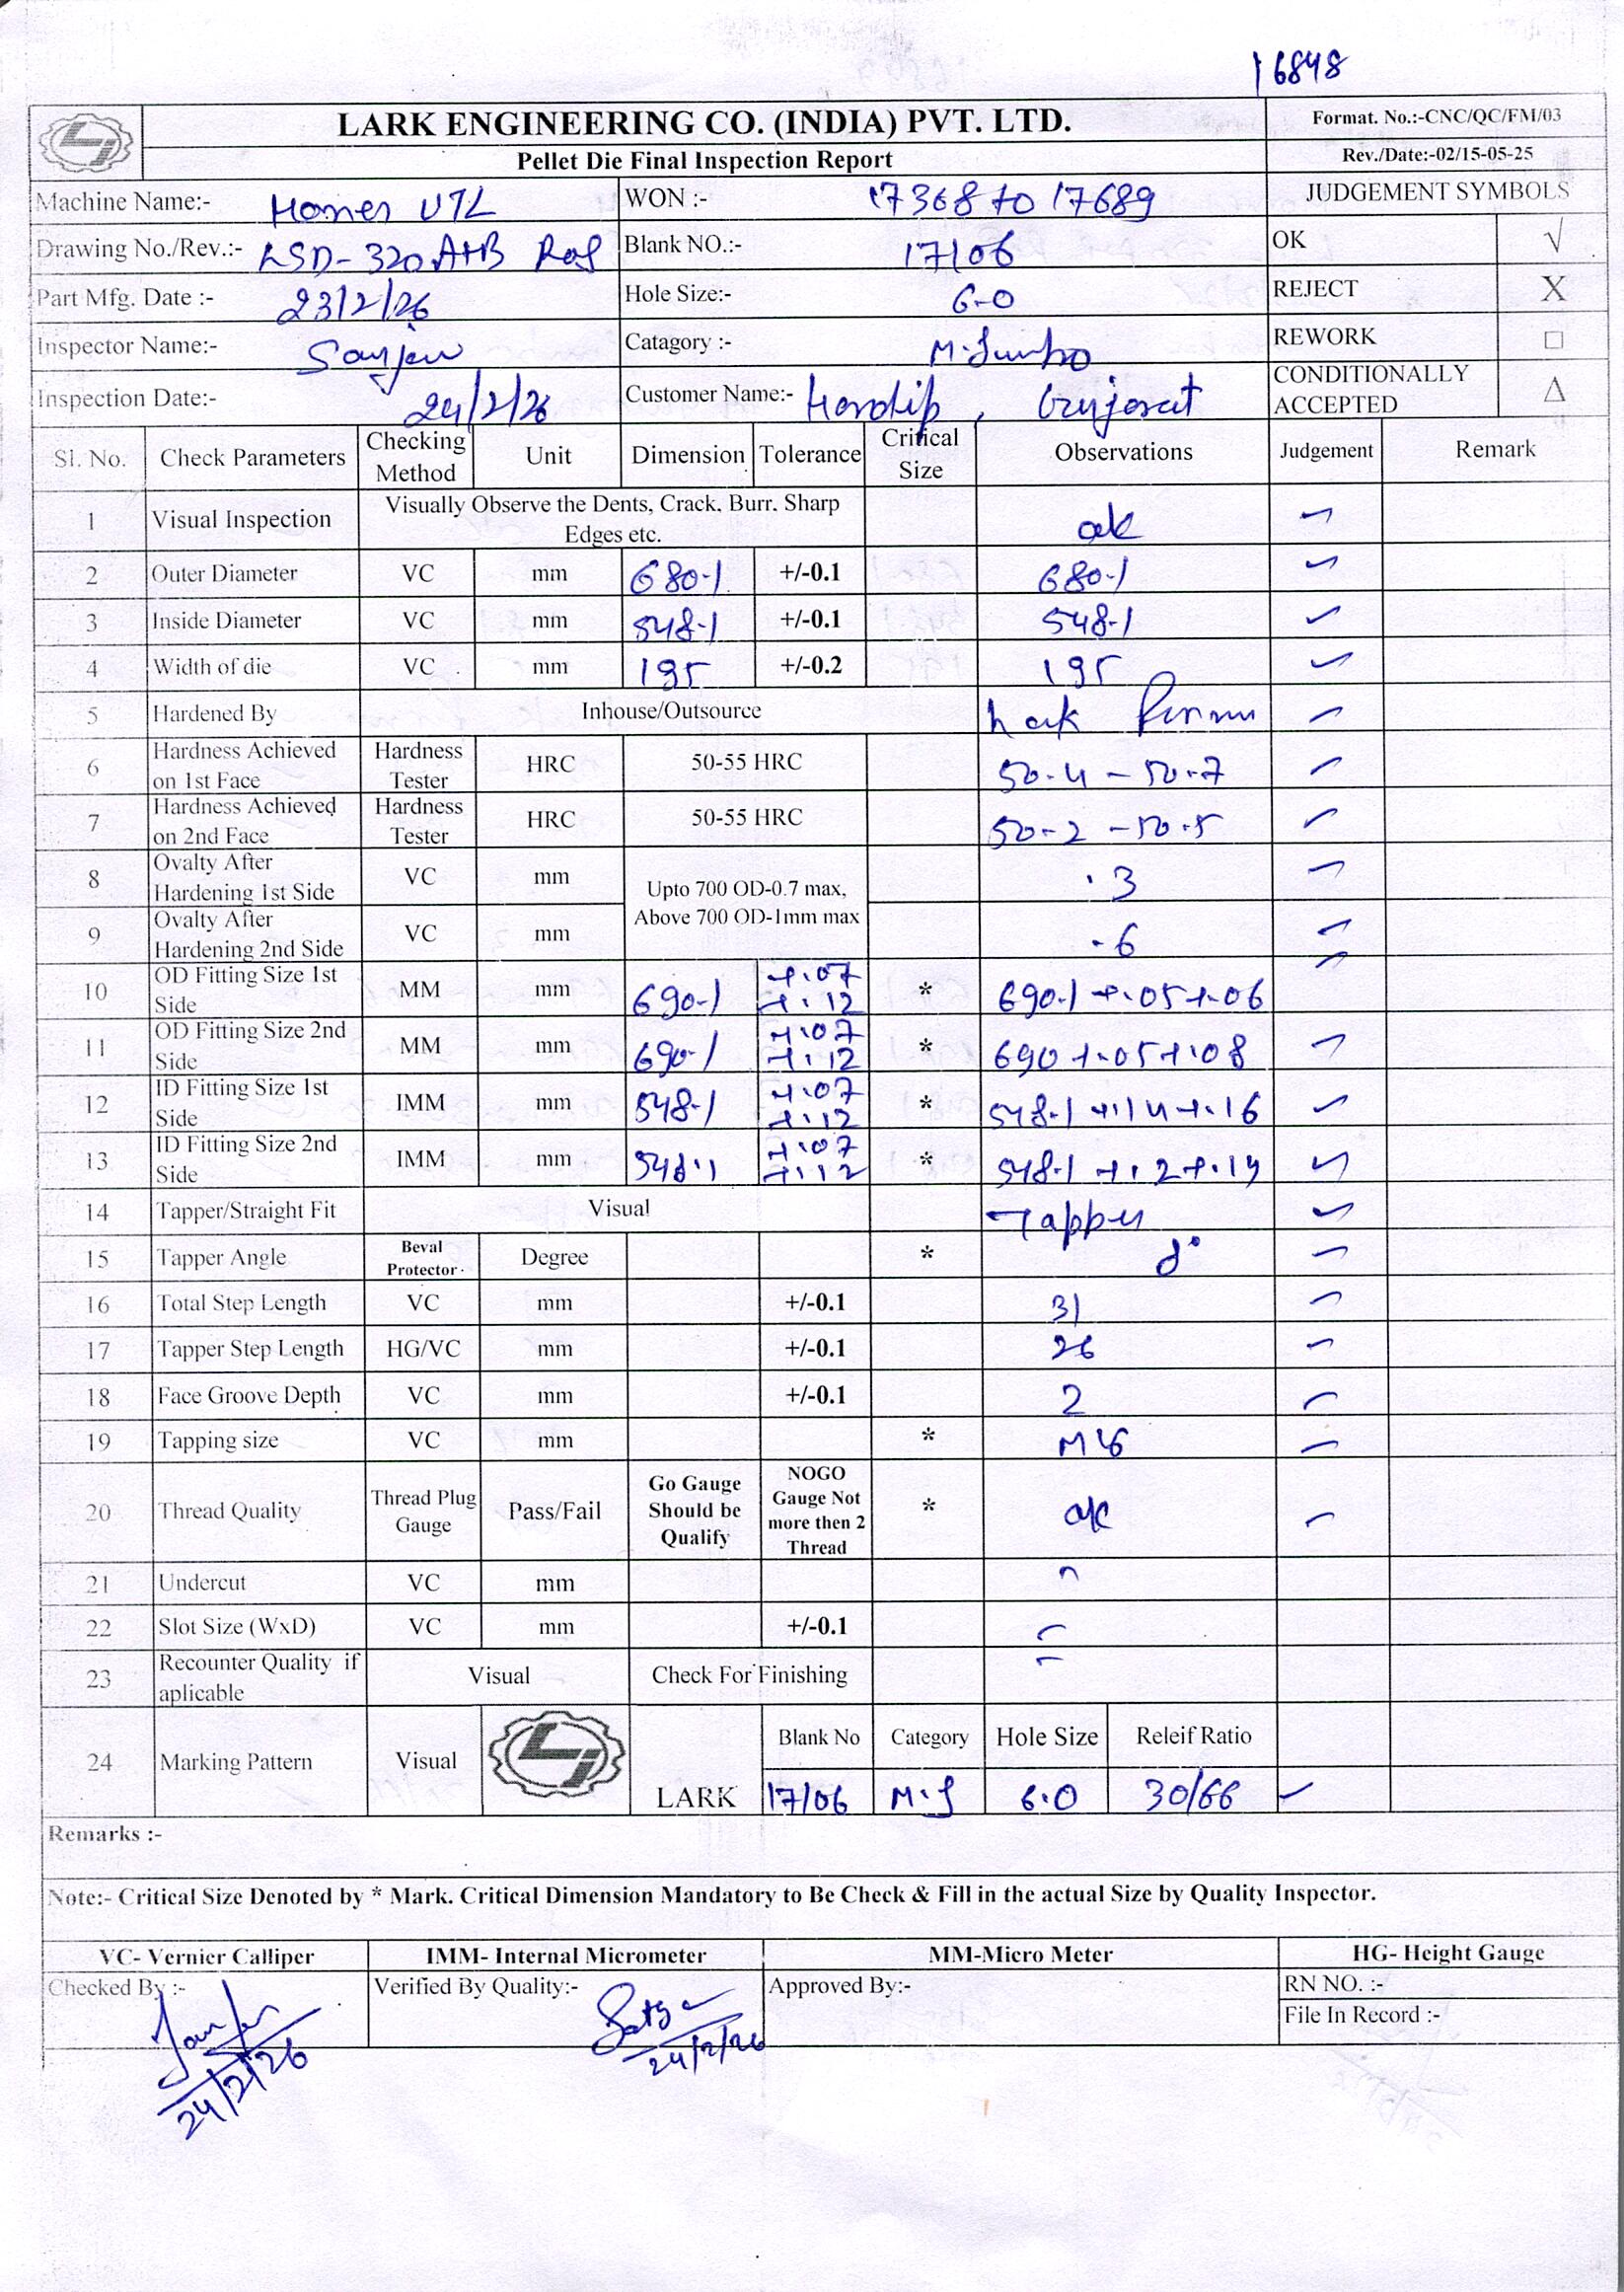 16848
LARK ENGINEERING CO. (INDIA) PVT. LTD.
Format. No.:-CNC/QC/FM/03
Pellet Die Final Inspection Report
Rev./Date:-02/15-05-25
Machine Name:- UTL WON :- 17368 to 17689 JUDGEMENT SYMBOLS
Drawing No./Rev.:- LSD-320 A+B Blank NO.:- 17/06 OK √
Part Mfg. Date :- 23/2/26 Hole Size:- 6.0 REJECT X
Inspector Name:- Sanjeev Catagory :- M.Jumbo REWORK □
Inspection Date:- 24/2/26 Customer Name:- Hardip, Gujarat CONDITIONALLY ACCEPTED Δ
Sl. No. Check Parameters Checking Method Unit Dimension Tolerance Critical Size Observations Judgement Remark
1 Visual Inspection Visually Observe the Dents, Crack, Burr, Sharp Edges etc. ok
2 Outer Diameter VC mm 680.1 +/-0.1 680.1
3 Inside Diameter VC mm 548.1 +/-0.1 548.1
4 Width of die VC mm 195 +/-0.2 195
5 Hardened By Inhouse/Outsource Lark
6 Hardness Achieved on 1st Face Hardness Tester HRC 50-55 HRC 50.4 - 50.7
7 Hardness Achieved on 2nd Face Hardness Tester HRC 50-55 HRC 50.2 - 50.5
8 Ovalty After Hardening 1st Side VC mm Upto 700 OD-0.7 max, Above 700 OD-1mm max .3
9 Ovalty After Hardening 2nd Side VC mm .6
10 OD Fitting Size 1st Side MM mm 690.1 +.07 +.12 * 690.1 +.05+.06
11 OD Fitting Size 2nd Side MM mm 690.1 +.07 +.12 * 690 +.05+.08
12 ID Fitting Size 1st Side IMM mm 548.1 +.07 +.12 * 548.1 +.14+.16
13 ID Fitting Size 2nd Side IMM mm 548.1 +.07 +.12 * 548.1 +.2+.14
14 Tapper/Straight Fit Visual Tapper
15 Tapper Angle Beval Protector Degree *
16 Total Step Length VC mm +/-0.1 31
17 Tapper Step Length HG/VC mm +/-0.1 26
18 Face Groove Depth VC mm +/-0.1 2
19 Tapping size VC mm * M16
20 Thread Quality Thread Plug Gauge Pass/Fail Go Gauge Should be Qualify NOGO Gauge Not more then 2 Thread * ok
21 Undercut VC mm
22 Slot Size (WxD) VC mm +/-0.1
23 Recounter Quality if aplicable Visual Check For Finishing
24 Marking Pattern Visual LARK Blank No Category Hole Size Releif Ratio
17/06 M.J 6.0 30/66
Remarks :-
Note:- Critical Size Denoted by * Mark. Critical Dimension Mandatory to Be Check & Fill in the actual Size by Quality Inspector.
VC- Vernier Calliper IMM- Internal Micrometer MM-Micro Meter HG- Height Gauge
Checked By :- Verified By Quality:- Approved By:- RN NO. :-
File In Record :-
24/2/26 24/2/26